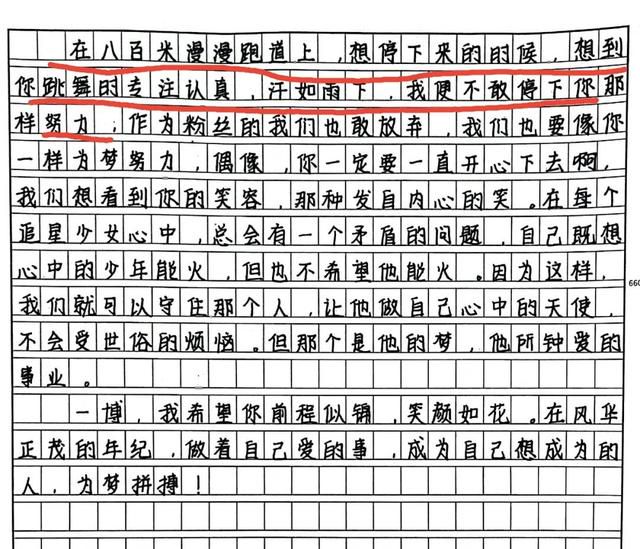 在八百米漫漫跑道上，想停下来的时候，想到
你跳舞时专注认真，汗如雨下，我便不敢停下你那
样努力，作为粉丝的我们也敢放弃，我们也要像你
一样为梦努力，偶像，你一定要一直开心下去啊，
我们想看到你的笑容，那种发自内心的笑。在每个
追星少女心中，总会有一个矛盾的问题，自己既想
心中的少年能火，但也不希望他能火。因为这样，
我们就可以守住那个人，让他做自己心中的天使，
不会受世俗的烦恼。但那个是他的梦，他所钟爱的
事业。
660
一博，我希望你前程似锦，笑颜如花。在风华
正茂的年纪，做着自己爱的事，成为自己想成为的
人，为梦拼搏！